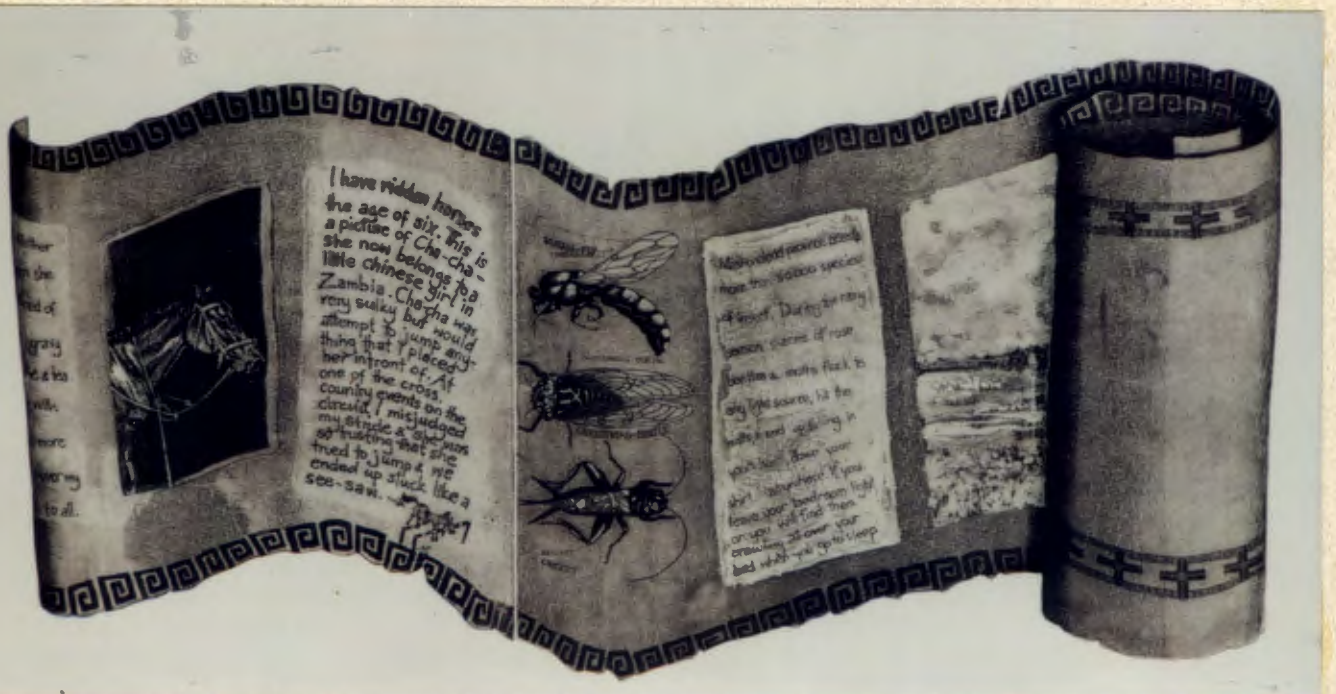 she
gray
more
to all.
I have ridden horses
the age of six. This is
a picture of Cha-cha-
she now belongs to a
little chinese girl in
Zambia. Cha-cha was
very sulky but would
attempt to jump any-
thing that I placed
her infront of. At
one of the cross
country events on the
circuit, I misjudged
my stride & she was
so trusting that she
tried to jump & we
ended up stuck like a
see-saw.
CRICKET
more than species
of insect. During the rainy
season swarms of rose
beetles & moths flock to
any light source, hit the
wall & end up falling in
your down your
shirt. If you
leave your bedroom light
on you will find them
crawling all over your
bed when you go to sleep